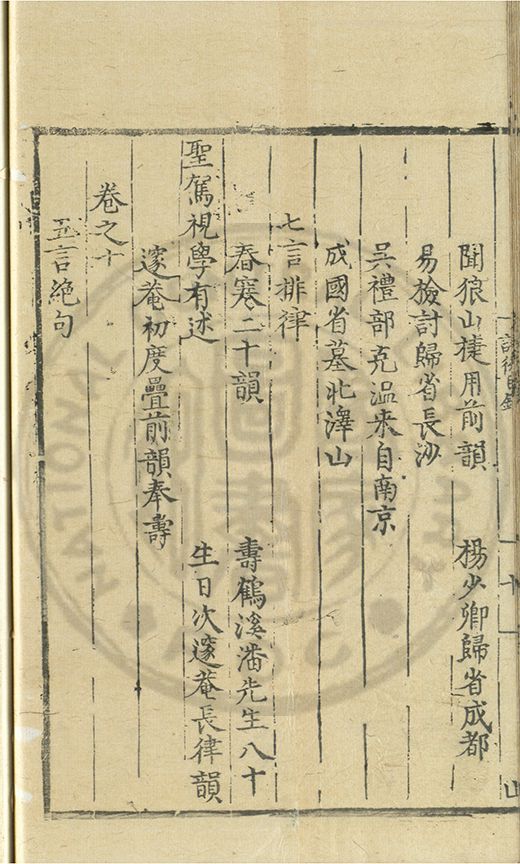 聞狼山捷用前韻　楊少卿歸省成都
易檢討歸省長沙
吳禮部克溫來自南京
成國省墓北澤山
七言排律
春寒二十韻　壽鶴溪潘先生八十
聖駕視學有述　生日次邃菴長律韻
邃菴初度疊前韻奉壽
卷之十
五言絕句